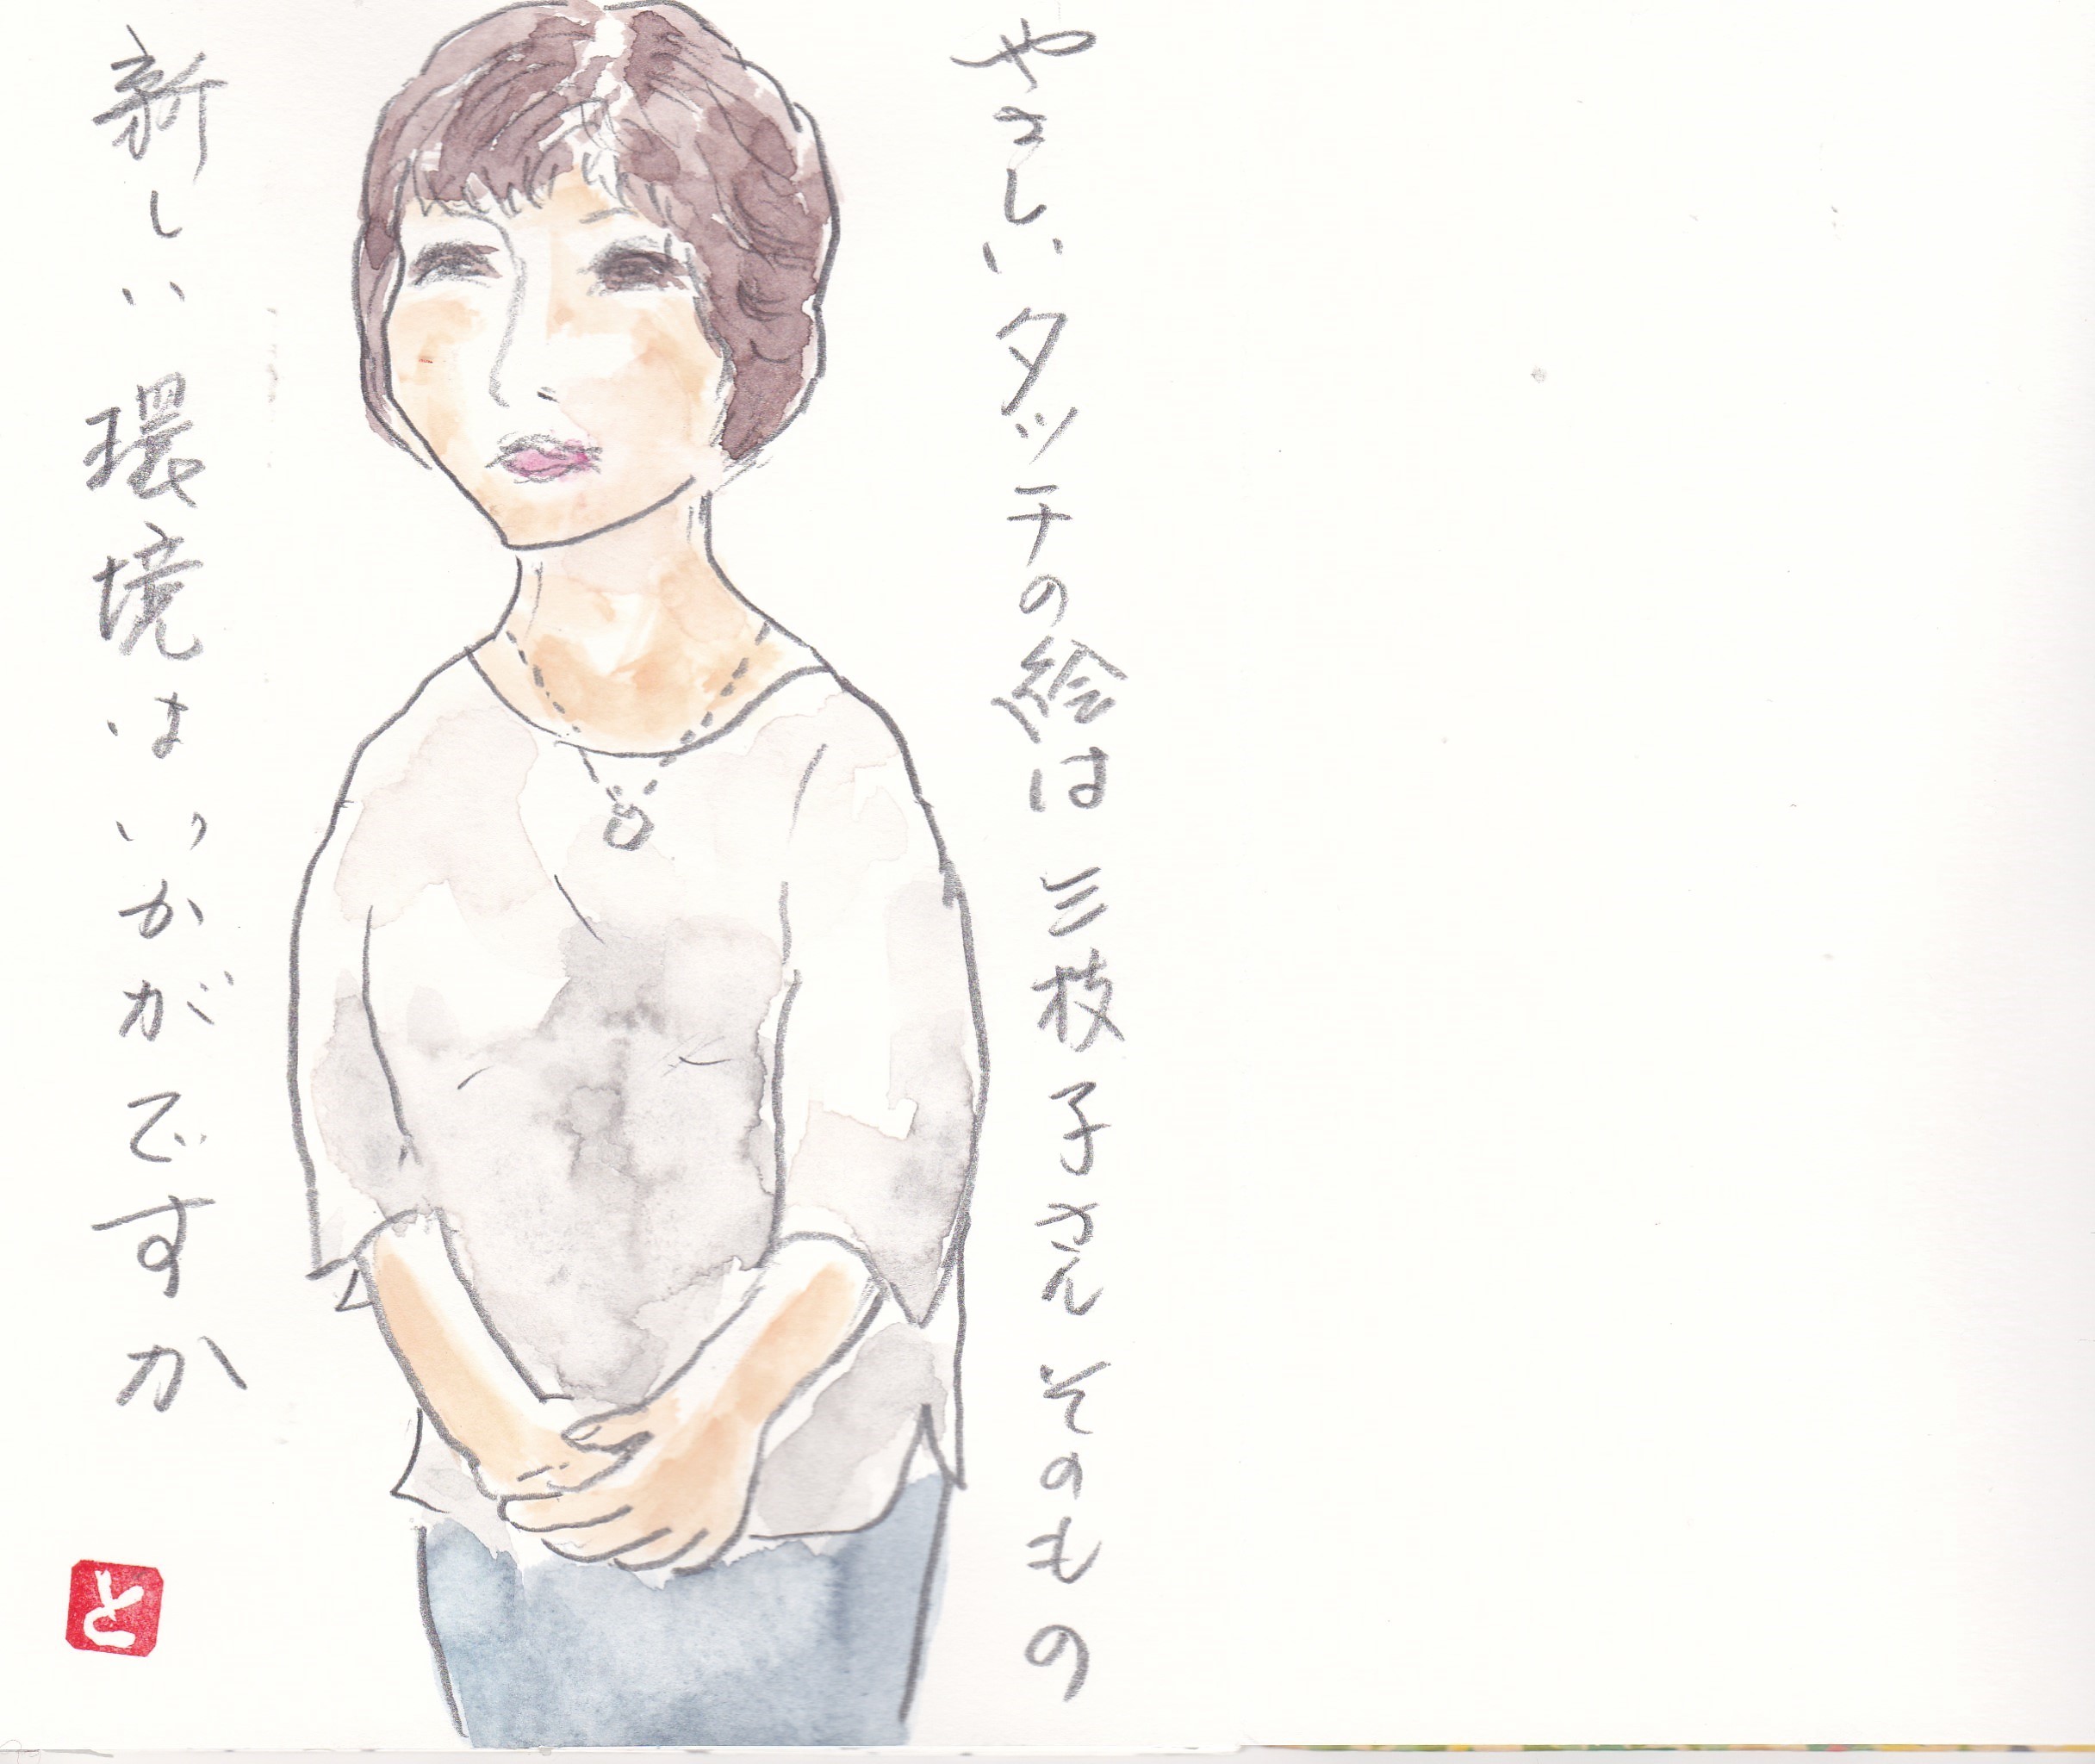 やさしいタッチの絵は三枝子さんそのもの
新しい環境はいかがですか
と